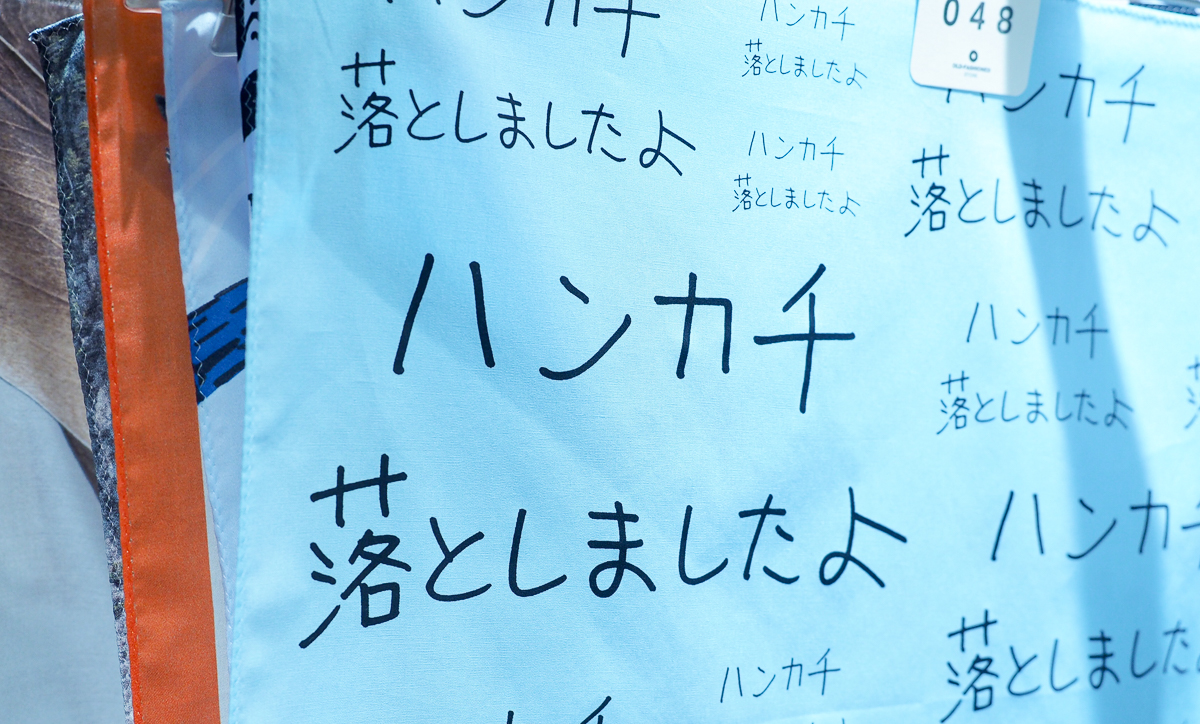 ハンカチ
落としましたよ
ハンカチ
落としましたよ
048
ハンカチ
落としましたよ
ハンカチ
落としましたよ
ハンカチ
落としましたよ
ハンカチ
落としましたよ
ハンカチ
落としました
ハンカチ